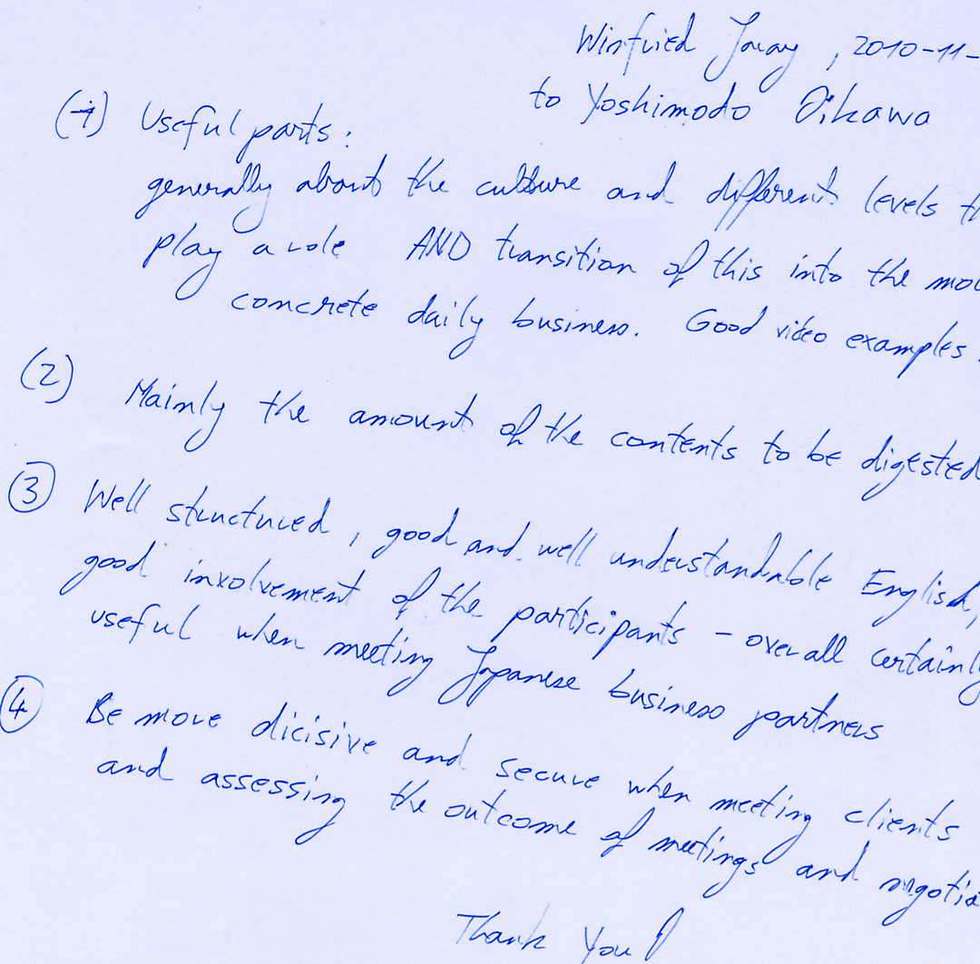 Winfried 2010-11-
to Yoshimodo Oikawa
(1) Useful parts:
generally about the culture and different levels th
play a role AND transition of this into the mor
concrete daily business. Good video examples.
(2) Mainly the amount of the contents to be digested
(3) Well structured, good and well understandable English,
good involvement of the participants - overall certainly
useful when meeting Japanese business partners
(4) Be more dicisive and secure when meeting clients
and assessing the outcome of meetings and negotia
Thank You!